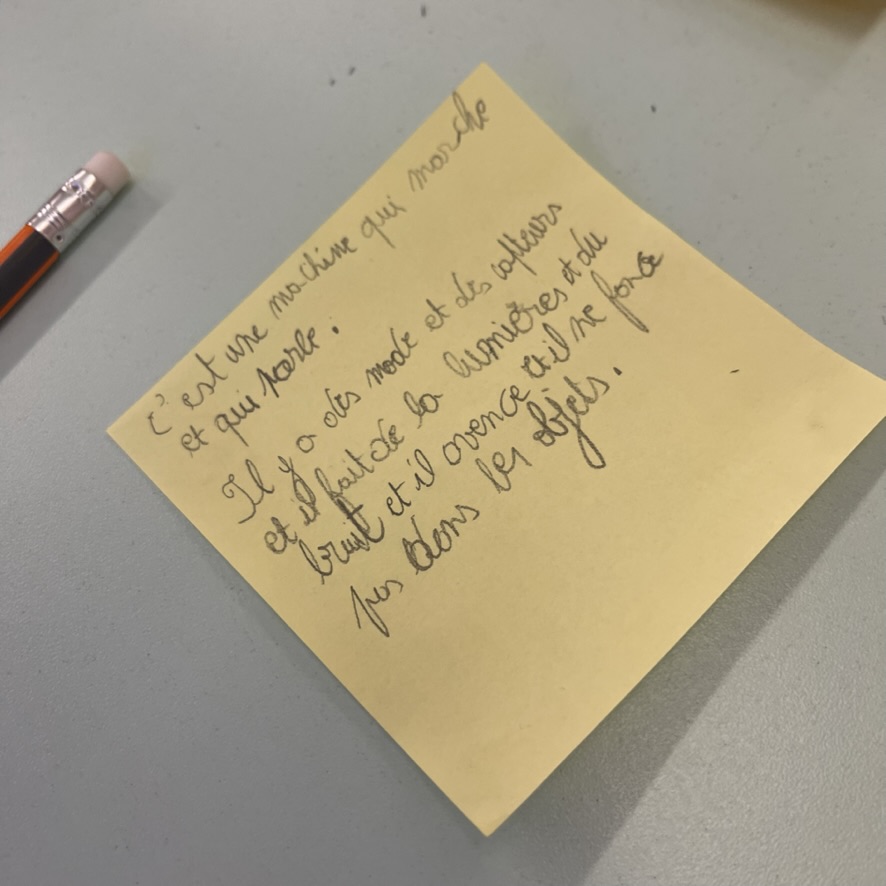 C'est une machine qui marche
et qui parle.
Il y a des mode et des capteurs
et il fait de la lumières et du
bruit et il avence et il ne fonce
pas dans les objets.